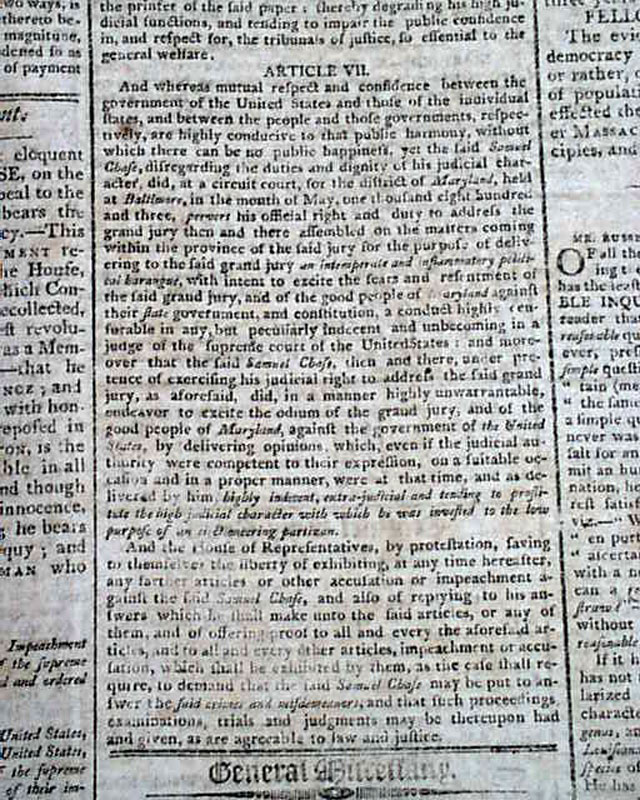 two ways, is
thereto be-
magnitude,
dened ſo as
of payment
eloquent
SE, on the
peal to the
bears the
cy.—This
MENT re-
he Houſe,
hich Con-
ecollected,
ſt revolu-
as a Mem-
—that he
NCE; and
with hon-
repoſed in
ON, is the
ble in all
nd though
innocence,
he bears
quy; and
MAN who
Impeachment
f the ſupreme
d and ordered
United States,
United States,
f the ſupreme
of their im-
the printer of the ſaid paper: thereby degrading his high ju-
dicial functions, and tending to impair the public confidence
in, and reſpect for, the tribunals of juſtice, ſo eſſential to the
general welfare.
ARTICLE VII.
And whereas mutual reſpect and confidence between the
government of the United States and thoſe of the individual
ſtates, and between the people and thoſe governments, reſpec-
tively, are highly conducive to that public harmony, without
which there can be no public happineſs, yet the ſaid Samuel
Chaſe, diſregarding the duties and dignity of his judicial char-
acter, did, at a circuit court, for the diſtrict of Maryland, held
at Baltimore, in the month of May, one thouſand eight hundred
and three, pervert his official right and duty to addreſs the
grand jury then and there aſſembled on the matters coming
within the province of the ſaid jury for the purpoſe of deliv-
ering to the ſaid grand jury an intemperate and inflammatory politi-
cal harangue, with intent to excite the fears and reſentment of
the ſaid grand jury, and of the good people of Maryland againſt
their ſtate government, and conſtitution, a conduct highly cen-
ſurable in any, but peculiarly indecent and unbecoming in a
judge of the ſupreme court of the United States: and more-
over that the ſaid Samuel Chaſe, then and there, under pre-
tence of exerciſing his judicial right to addreſs the ſaid grand
jury, as aforeſaid, did, in a manner highly unwarrantable,
endeavor to excite the odium of the grand jury, and of the
good people of Maryland, againſt the government of the United
States, by delivering opinions, which, even if the judicial au-
thority were competent to their expreſſion, on a ſuitable oc-
caſion and in a proper manner, were at that time, and as de-
livered by him, highly indecent, extra-judicial and tending to proſti-
tute the high judicial character with which he was inveſted to the low
purpoſe of an electioneering partizan.
And the Houſe of Repreſentatives, by proteſtation, ſaving
to themſelves the liberty of exhibiting, at any time hereafter,
any farther articles or other accuſation or impeachment a-
gainſt the ſaid Samuel Chaſe, and alſo of replying to his an-
ſwers which he ſhall make unto the ſaid articles, or any of
them, and of offering proof to all and every the aforeſaid ar-
ticles, and to all and every other articles, impeachment or accu-
ſation, which ſhall be exhibited by them, as the caſe ſhall re-
quire, to demand that the ſaid Samuel Chaſe may be put to an-
ſwer the ſaid crimes and miſdemeanors, and that ſuch proceedings,
examinations, trials and judgments may be thereupon had
and given, as are agreeable to law and juſtice.
General Miſcellany.
FELL
The evi
democracy
or rather,
of populati
effected th
er MASSAC
ciples, and
MR. RUSS
OF all the
ing t
has the leaſt
BLE INQ
reader that
reaſonable qu
ever, pref
ſimple queſti
" tain (me
" the ſame
a ſimple qu
never wa
ſalt for an
mit an hu
nation, he
reſt ſatisf
viz.—" W
" en purt
" aſcerta
with a n
can a re
ſtraw!
without
reaſonable
If it i
has not
larized
charact
genus, an
Louiſian
ſpecies of
He has